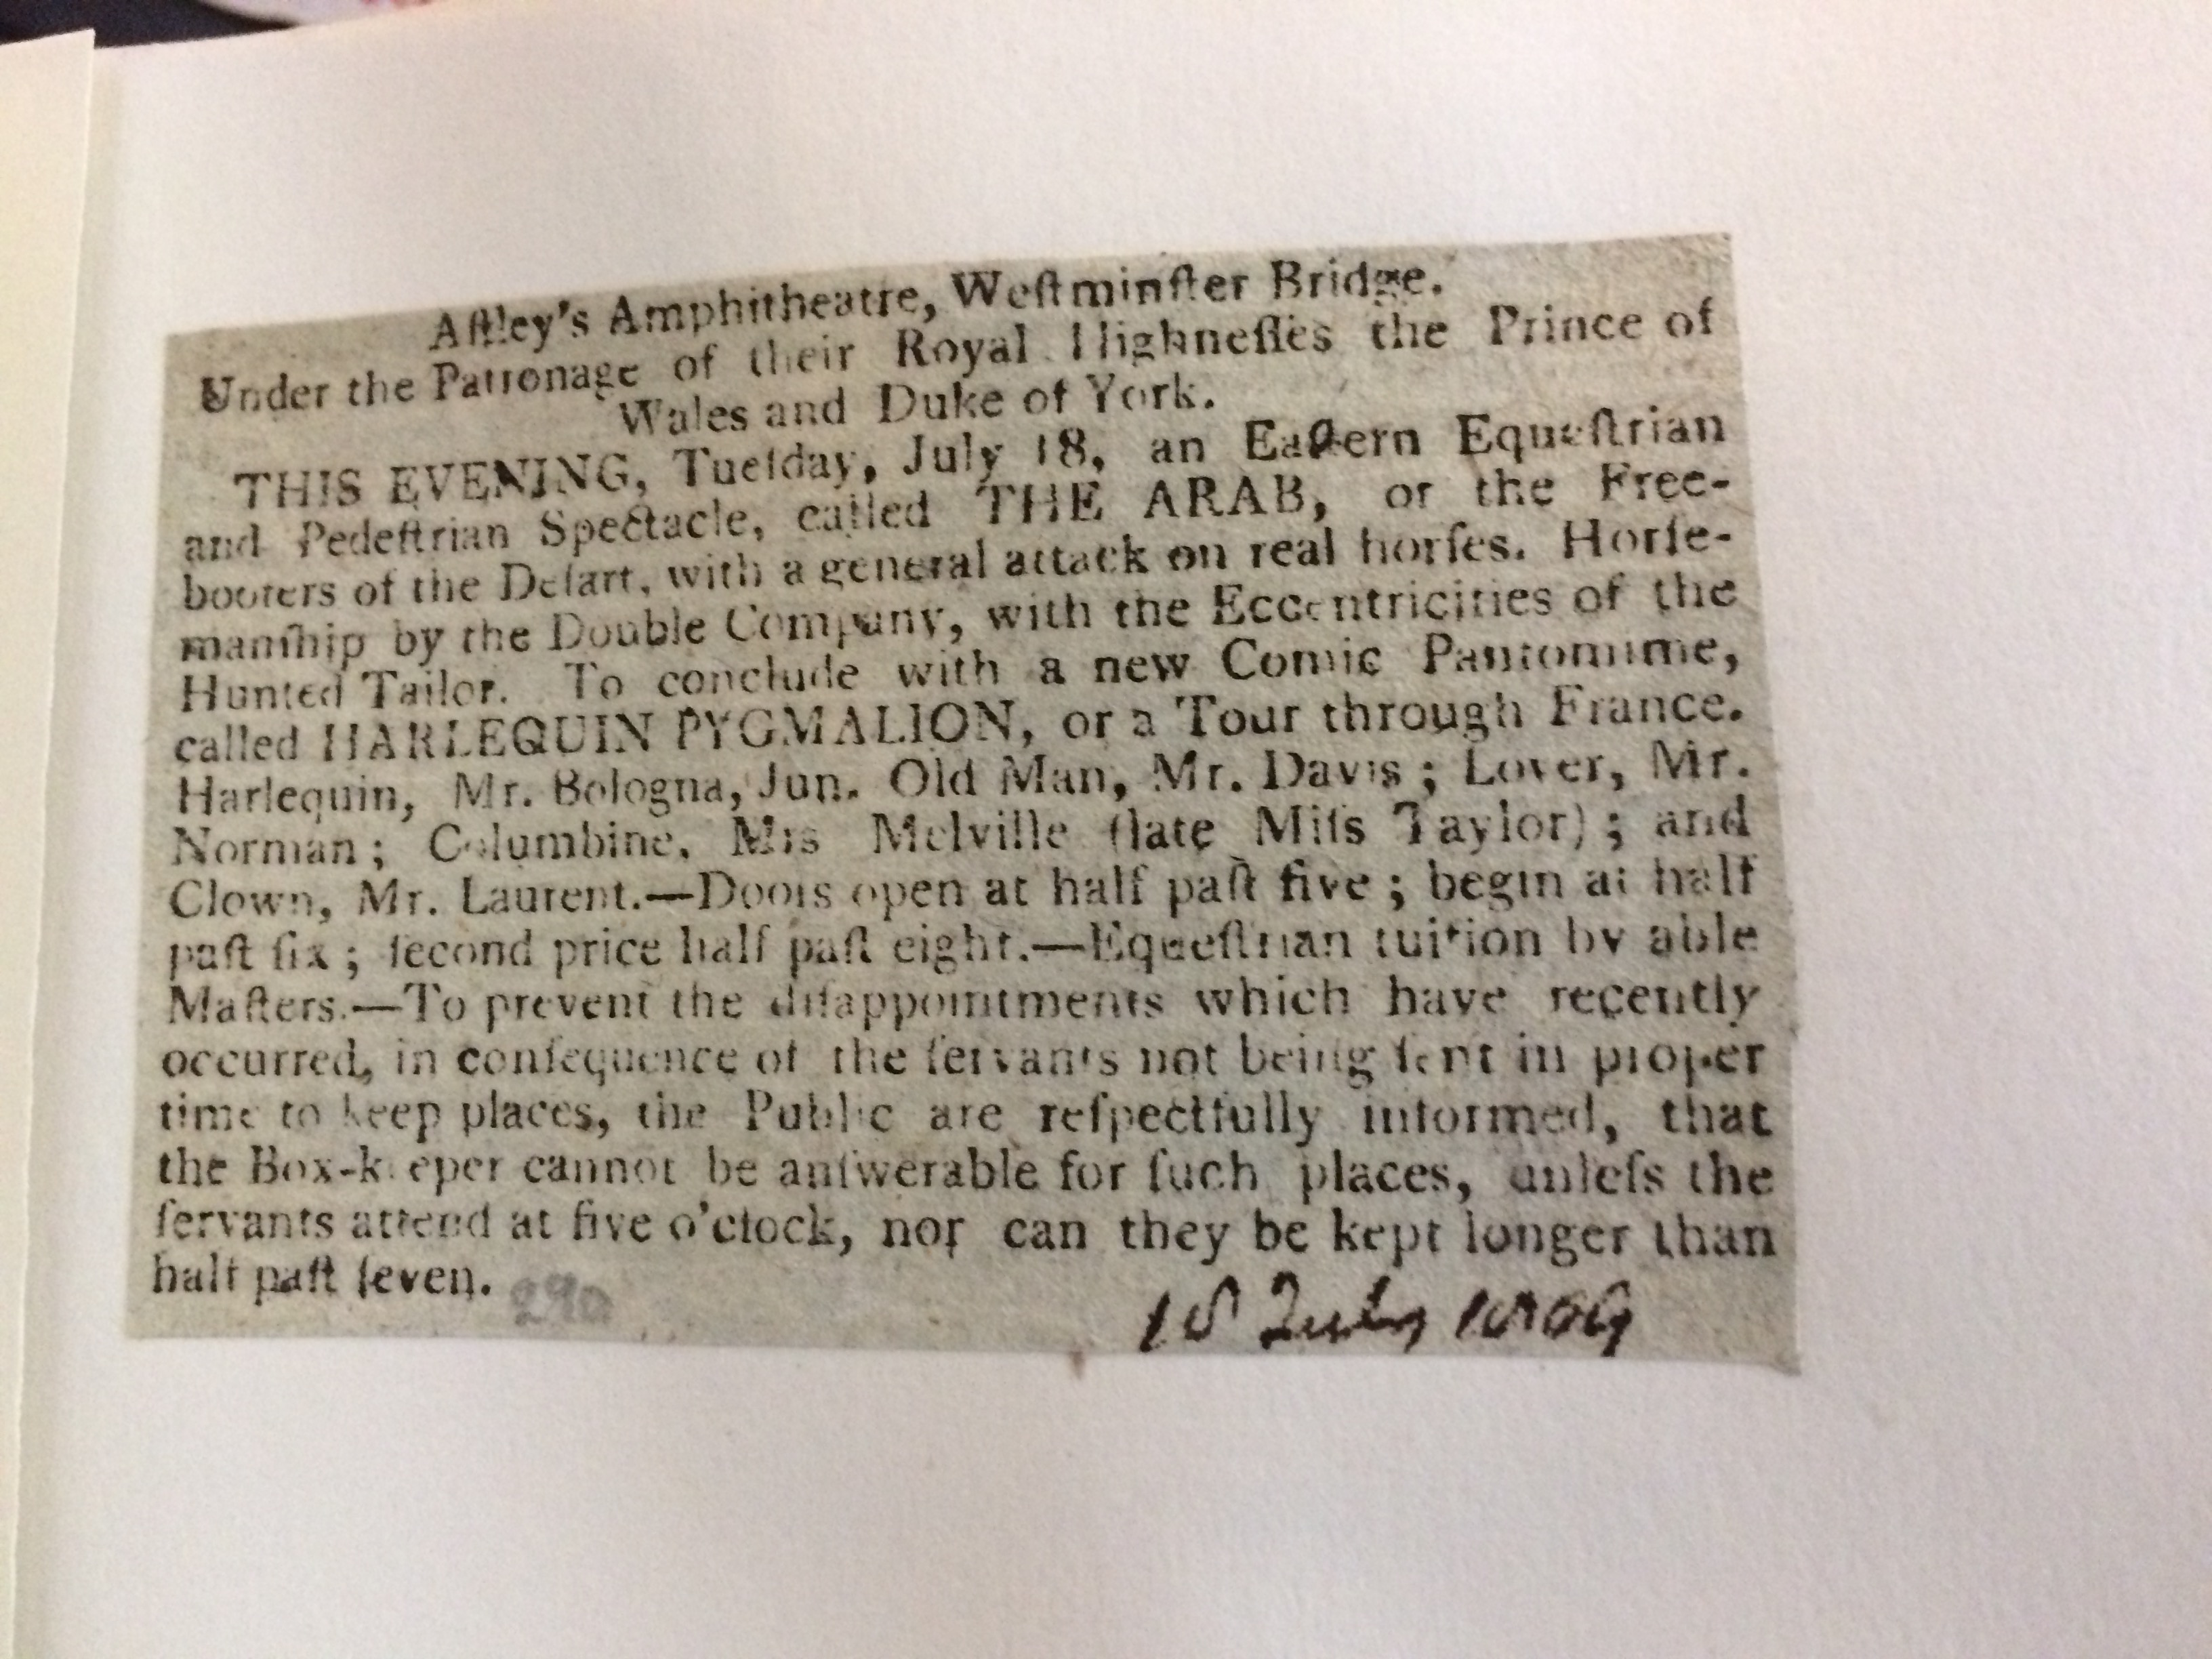 Aſtley's Amphitheatre, Weſtminſter Bridge.
Under the Patronage of their Royal Highneſſes the Prince of
Wales and Duke of York.
THIS EVENING, Tueſday, July 18, an Eaſtern Equeſtrian
and Pedeſtrian Spectacle, called THE ARAB, or the Free-
booters of the Deſart, with a general attack on real horſes. Horſe-
manſhip by the Double Company, with the Eccentricities of the
Hunted Tailor. To conclude with a new Comic Pantomime,
called HARLEQUIN PYGMALION, or a Tour through France.
Harlequin, Mr. Bologna, Jun. Old Man, Mr. Davis; Lover, Mr.
Norman; Columbine, Mrs Melville (late Miſs Taylor); and
Clown, Mr. Laurent.—Doors open at half paſt five; begin at half
paſt ſix; ſecond price half paſt eight.—Equeſtrian tuition by able
Maſters.—To prevent the diſappointments which have recently
occurred, in conſequence of the ſervants not being ſent in proper
time to keep places, the Public are reſpectfully informed, that
the Box-keeper cannot be anſwerable for ſuch places, unleſs the
ſervants attend at five o'clock, nor can they be kept longer than
half paſt ſeven.
18 July 1809